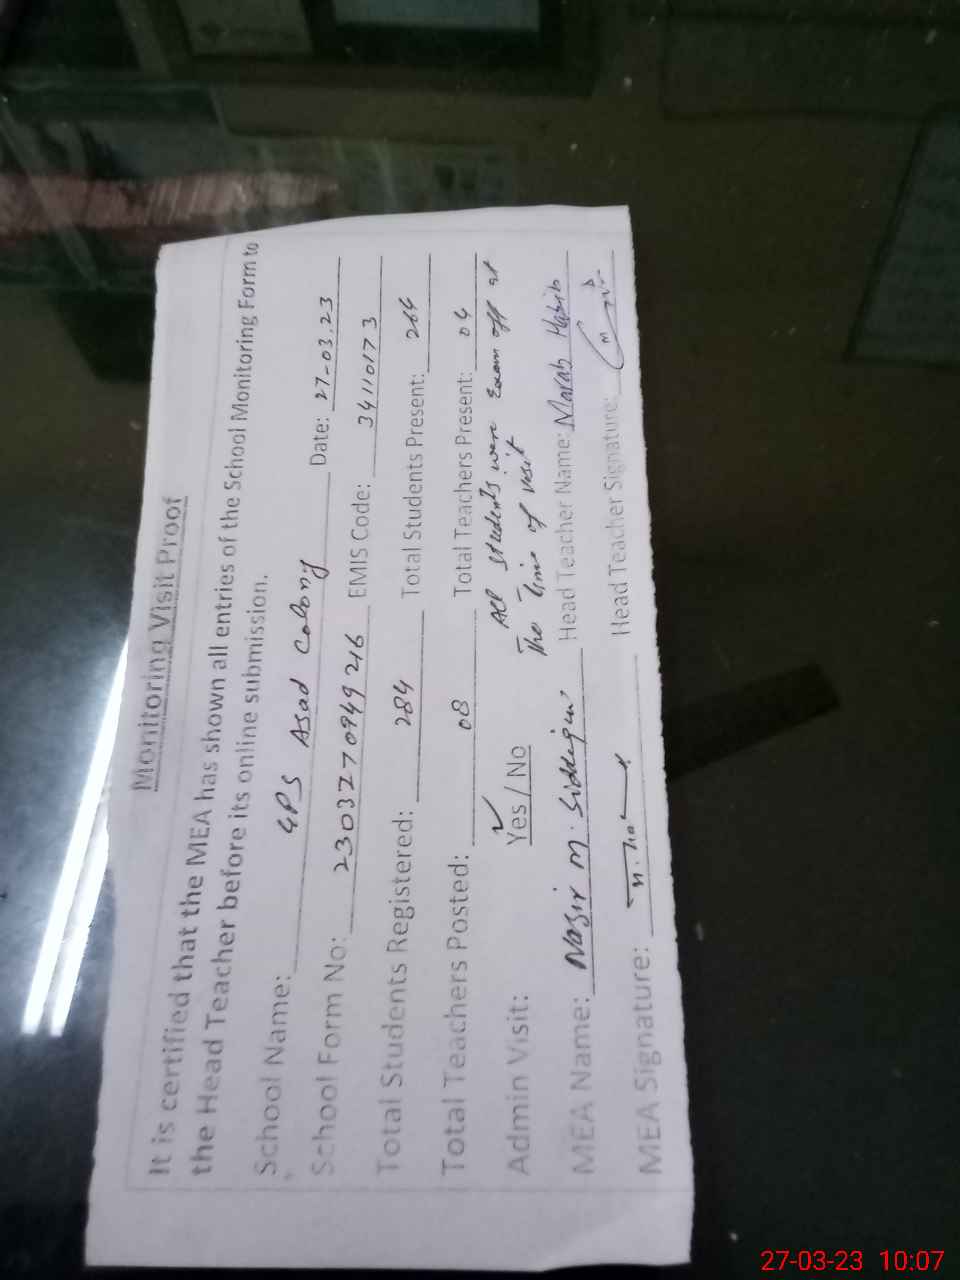 Monitoring Visit Proof
It is certified that the MEA has shown all entries of the School Monitoring Form to
the Head Teacher before its online submission.
School Name: GPS Asad Colony Date: 27-03.23
School Form No: 2303270949216 EMIS Code: 34110173
Total Students Registered: 284 Total Students Present: 264
Total Teachers Posted: 08 Total Teachers Present: 04
Admin Visit: Yes / No All students were Exam off at
The time of visit
MEA Name: Nasir M. Head Teacher Name: Habib
MEA Signature: Head Teacher Signature:
27-03-23 10:07